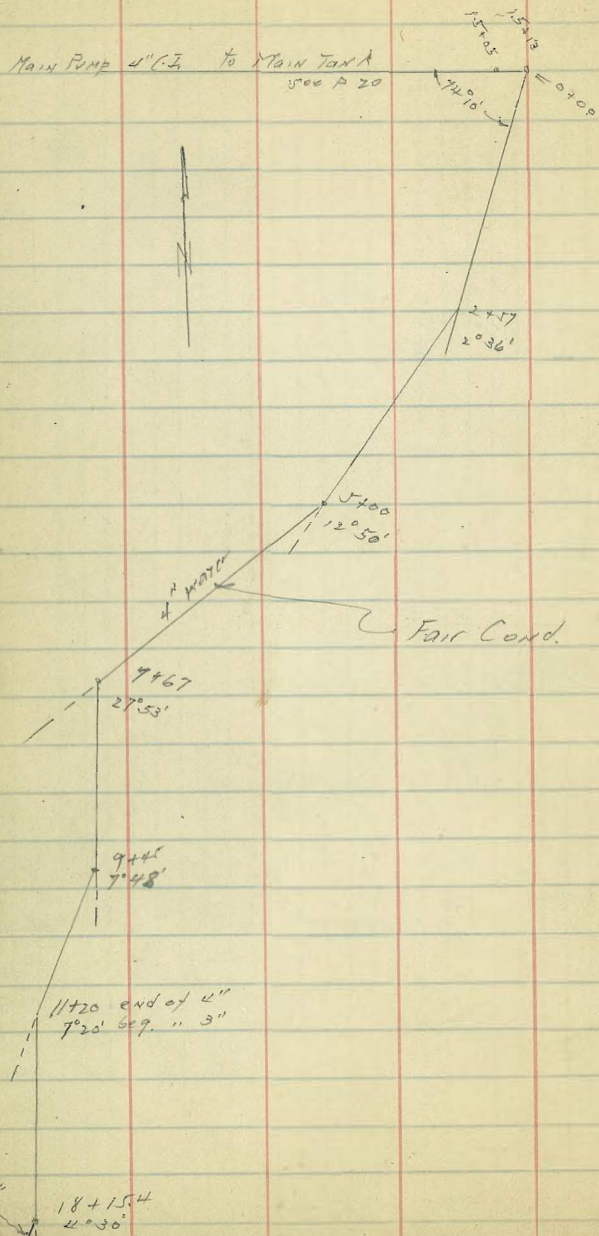 15+13
15+05
Main Pump 4" C.I. to Main Tank
see P 20
0+00
74°10'
N
2+57
2°36'
5+00
12°50'
4" water
Fair Cond.
7+67
27°53'
9+45
7°48'
11+20 end of 4"
7°20' beg. " 3"
18+15.4
4°30'